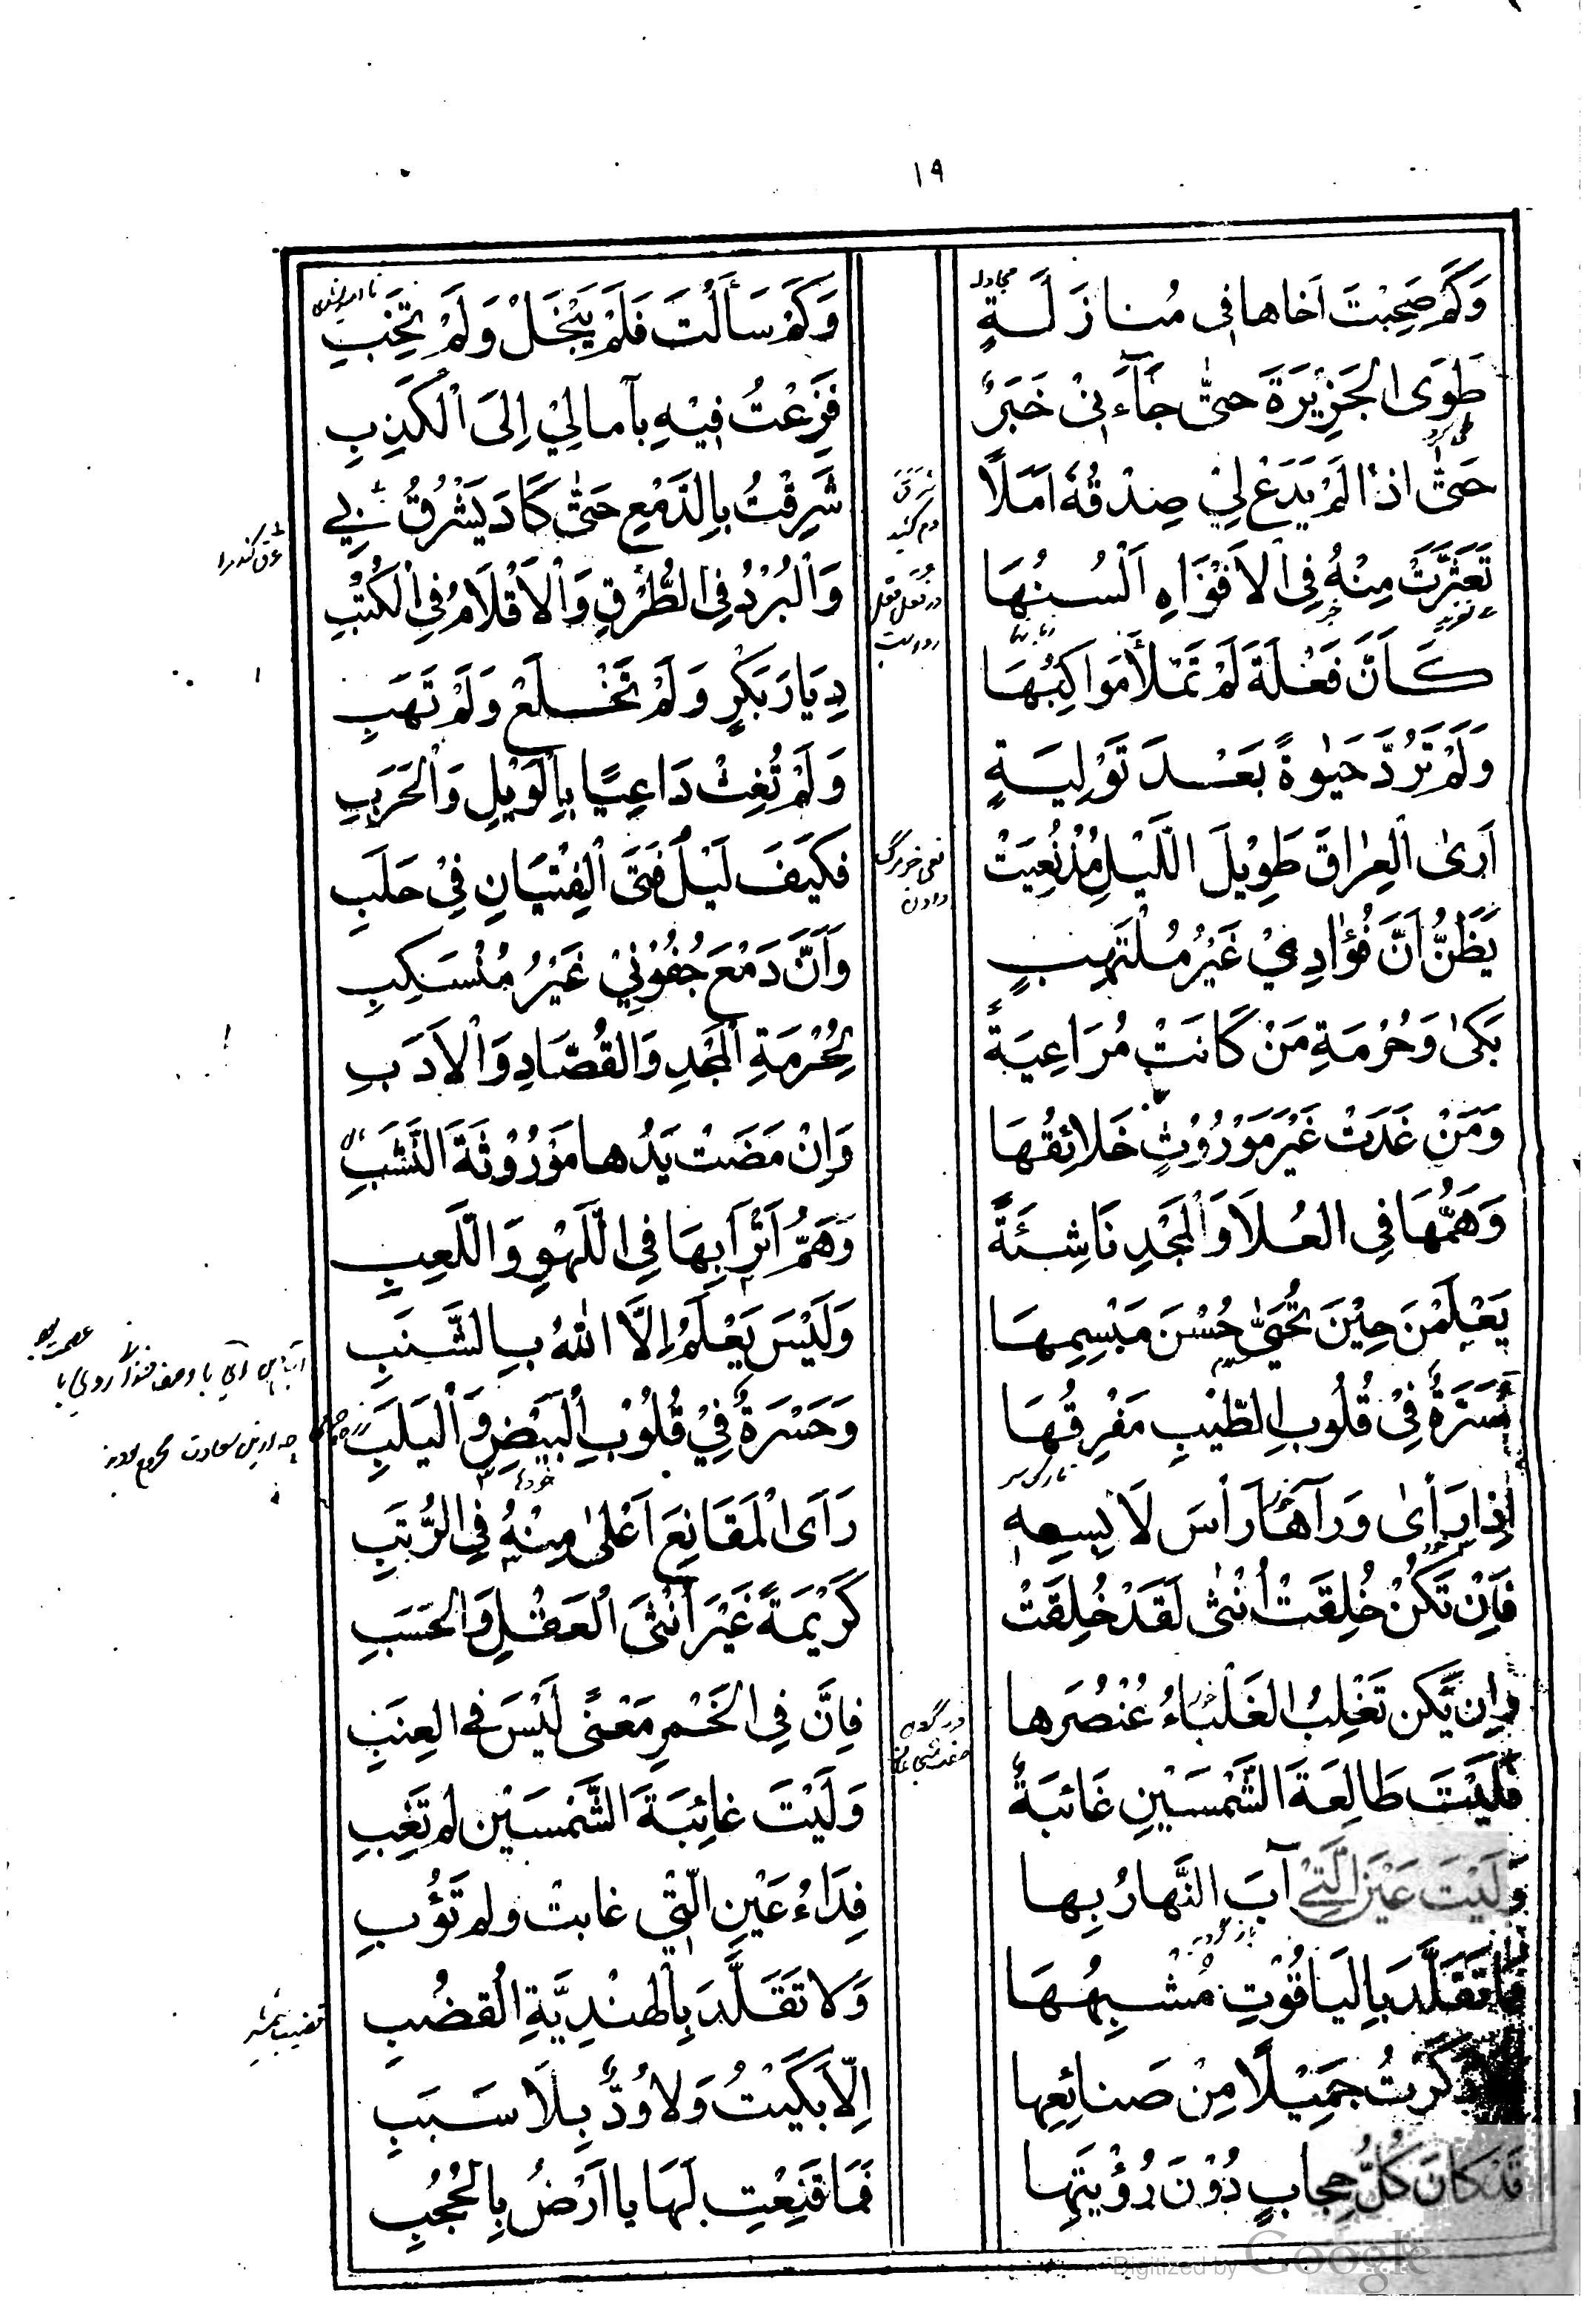 ١٩
وَكَمْ صَحِبْتَ اَخاها فِى مُنازَلَةٍ وَكَمْ سَأَلْتَ فَلَمْ يَبْخَلْ وَلَمْ تَخِبِ
طَوَى الجَزِيْرَةَ حتّٰى جَآءَنِىْ خَبَرٌ فَزَعْتُ فِيْهِ بآمالِيْ اِلَى الْكَذِبِ
حَتّٰى اذا لَمْ يَدَعْ لِيْ صِدْقُهُ اَمَلًا شَرِقْتُ بِالدَّمْعِ حَتّٰى كَادَ يَشْرُقُ بِيْ
تَعَثَّرَتْ مِنْهُ فِى الاَفْوَاهِ اَلْسُنُهَا وَالْبُرْدُ فِى الطُّرْقِ وَالْاَقْلَامُ فِى الْكُتْبِ
كَاَنَّ فَعْلَةَ لَمْ تَمْلَأْ مَوَاكِبُهَا دِيَارَ بَكْرٍ وَلَمْ تَخْلَعْ وَلَمْ تَهَبِ
وَلَمْ تَرُدَّ حَيٰوةً بَعْدَ تَوْلِيَةٍ وَلَمْ تُغِثْ دَاعِيًا بِالْوَيْلِ وَالْحَرَبِ
اَرَى الْعِرَاقَ طَوِيْلَ اللَّيْلِ مُذْ نُعِيَتْ فَكَيْفَ لَيْلُ فَتَى الْفِتْيَانِ فِيْ حَلَبِ
يَظُنُّ اَنَّ فُؤَادِيْ غَيْرُ مُلْتَهِبٍ وَاَنَّ دَمْعَ جُفُوْنِيْ غَيْرُ مُنْسَكِبِ
بَكىٰ وَحُرْمَةِ مَنْ كَانَتْ مُرَاعِيَةً لِحُرْمَةِ الْمَجْدِ وَالقُصَّادِ وَالْاَدَبِ
وَمَنْ غَدَتْ غَيْرَ مَوْرُوْثٍ خَلائِقُهَا وَاِنْ مَضَتْ يَدُها مَوْرُوْثَةَ النَّشَبِ
وَهَمُّهَا فِى العُلَا وَالْمَجْدِ نَاشِئَةً وَهَمُّ اَتْرَابِهَا فِى اللَّهْوِ وَاللَّعِبِ
يَعْلَمْنَ حِيْنَ تُحَيّٰى حُسْنَ مَبْسِمِهَا وَلَيْسَ يَعْلَمُ اِلَّا اللهُ بِالشَّنَبِ
مَسَرَّةٌ فِىْ قُلُوْبِ الطِّيْبِ مَفْرِقُهَا وَحَسْرَةٌ فِيْ قُلُوْبِ الْبَيْضِ وَالْيَلَبِ
اِذا رَأىٰ وَرَآهَا رَأْسَ لَابِسِهِ رَاَى الْمَقَانِعَ اَعْلٰى مِنْهُ فِى الرُّتَبِ
فَاِنْ تَكُنْ خُلِقَتْ اُنْثٰى لَقَدْ خُلِقَتْ كَرِيْمَةً غَيْرَ اُنْثَى الْعَقْلِ وَالْحَسَبِ
وَاِن يَّكن تَغْلِبُ الغَلْبَاءُ عُنْصُرَها فاِنَّ فِى الخَمْرِ مَعْنًى لَيْسَ فى العِنَبِ
فَلَيْتَ طَالِعَةَ الشَّمْسَيْنِ غَائبَةٌ وَلَيْتَ غائِبَةَ الشَّمْسَيْنِ لم تَغِبِ
وَلَيْتَ عَيْنَ الَّتِيْ آبَ النَّهارُ بِها فِدَاءُ عَيْنِ الَّتِىْ غابتْ ولم تَؤُبِ
فما تَقَلَّدَ بِاليَاقُوْتِ مُشْبِهُهَا وَلا تَقَلَّدَ بِالْهِنْدِيَّةِ الْقُضُبِ
ذَكَرْتُ جَمِيْلًا مِنْ صَنائِعِها اِلّا بَكَيْتُ وَلا وُدٌّ بِلَا سَبَبِ
قَدْ كَانَ كُلُّ حِجابٍ دُوْنَ رُؤْيَتِها فَمَا قَنِعْتِ لَهَا يا اَرْضُ بِالْحُجُبِ
مجادله
نعى خبر مرگ
دادن
Digitized by Google